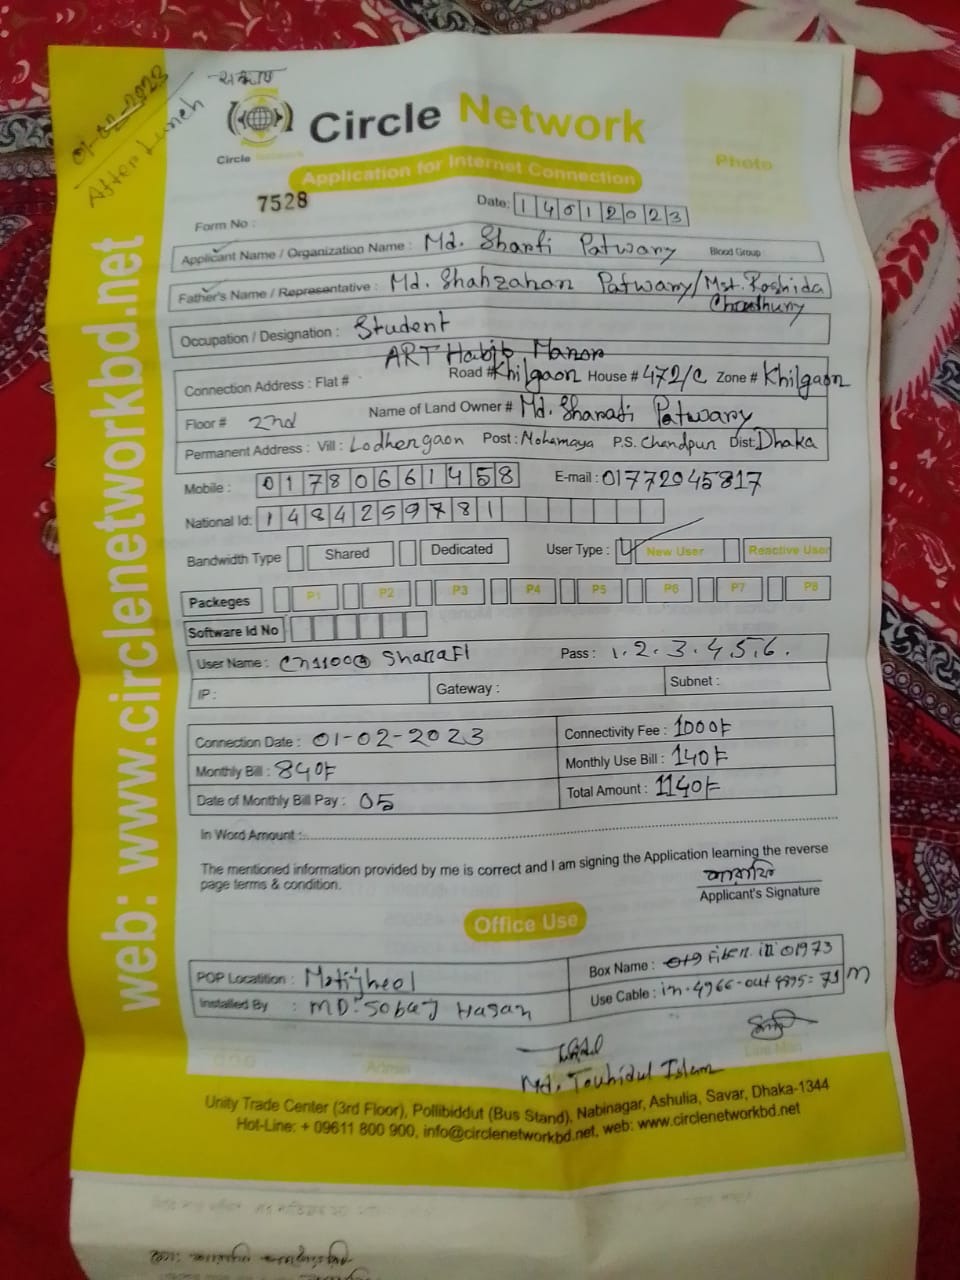 01-02-2023
After Lunch
Circle Network
Circle Network
Application for Internet Connection
Photo
Form No : 7528
Date: 14012023
Applicant Name / Organization Name : Md. Sharfi Patwary Blood Group
Father's Name / Representative : Md. Shahzahan Patwary/Mst. Roshida
Chowdhury
Occupation / Designation : Student
ART Habib Manor
Connection Address : Flat # Road # Khilgaon House # 472/C Zone # Khilgaon
Floor # 2nd Name of Land Owner # Md. Sharafi Patwary
Permanent Address : Vill : Lodhergaon Post : Mohamaya P.S. Chandpur Dist: Dhaka
Mobile : 01780661458 E-mail : 01772045817
National Id: 1484259781
Bandwidth Type Shared Dedicated User Type : New User Reactive User
Packeges P1 P2 P3 P4 P5 P6 P7 P8
Software Id No
User Name : Sharafi Pass : 1.2.3.4.5.6.
IP : Gateway : Subnet :
Connection Date : 01-02-2023 Connectivity Fee : 1000৳
Monthly Bill : 840৳ Monthly Use Bill : 140৳
Date of Monthly Bill Pay : 05 Total Amount : 1140৳
In Word Amount :
The mentioned information provided by me is correct and I am signing the Application learning the reverse
page terms & condition.
Applicant's Signature
Office Use
POP Locatition : Motijheel Box Name : Fiber. in 01973
Installed By : MD. Sobuj Hasan Use Cable : in-4966-out 4895= 71 M
Admin Line Man
Md. Touhidul Islam
Unity Trade Center (3rd Floor), Pollibiddut (Bus Stand), Nabinagar, Ashulia, Savar, Dhaka-1344
Hot-Line: + 09611 800 900, info@circlenetworkbd.net, web: www.circlenetworkbd.net
web: www.circlenetworkbd.net